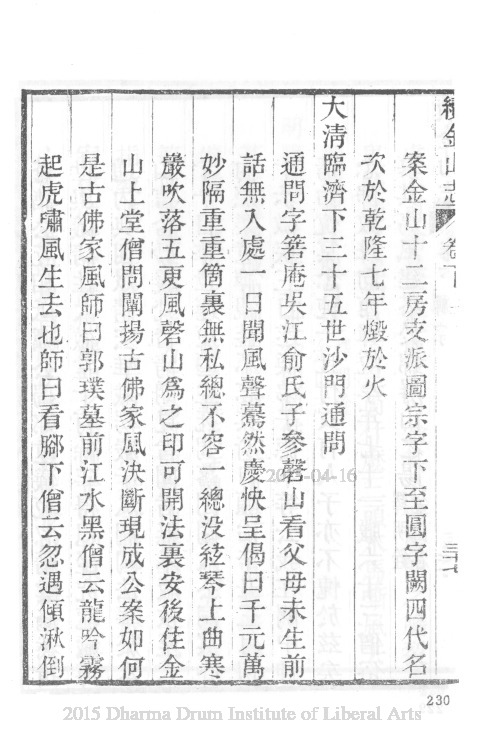 續金山志 卷下
三十七
案金山十二房支派圖宗字下至圓字闕四代名
次於乾隆七年燬於火
大清臨濟下三十五世沙門通問
通問字箬庵吳江俞氏子參磬山看父母未生前
話無入處一日聞風聲驀然慶快呈偈曰千元萬
妙隔重重箇裏無私總不容一總没絃琴上曲寒
巖吹落五更風磬山爲之印可開法裏安後住金
山上堂僧問闡揚古佛家風決斷現成公案如何
是古佛家風師曰郭璞墓前江水黑僧云龍吟霧
起虎嘯風生去也師曰看腳下僧云忽遇傾湫倒
230
2015-04-16
2015 Dharma Drum Institute of Liberal Arts